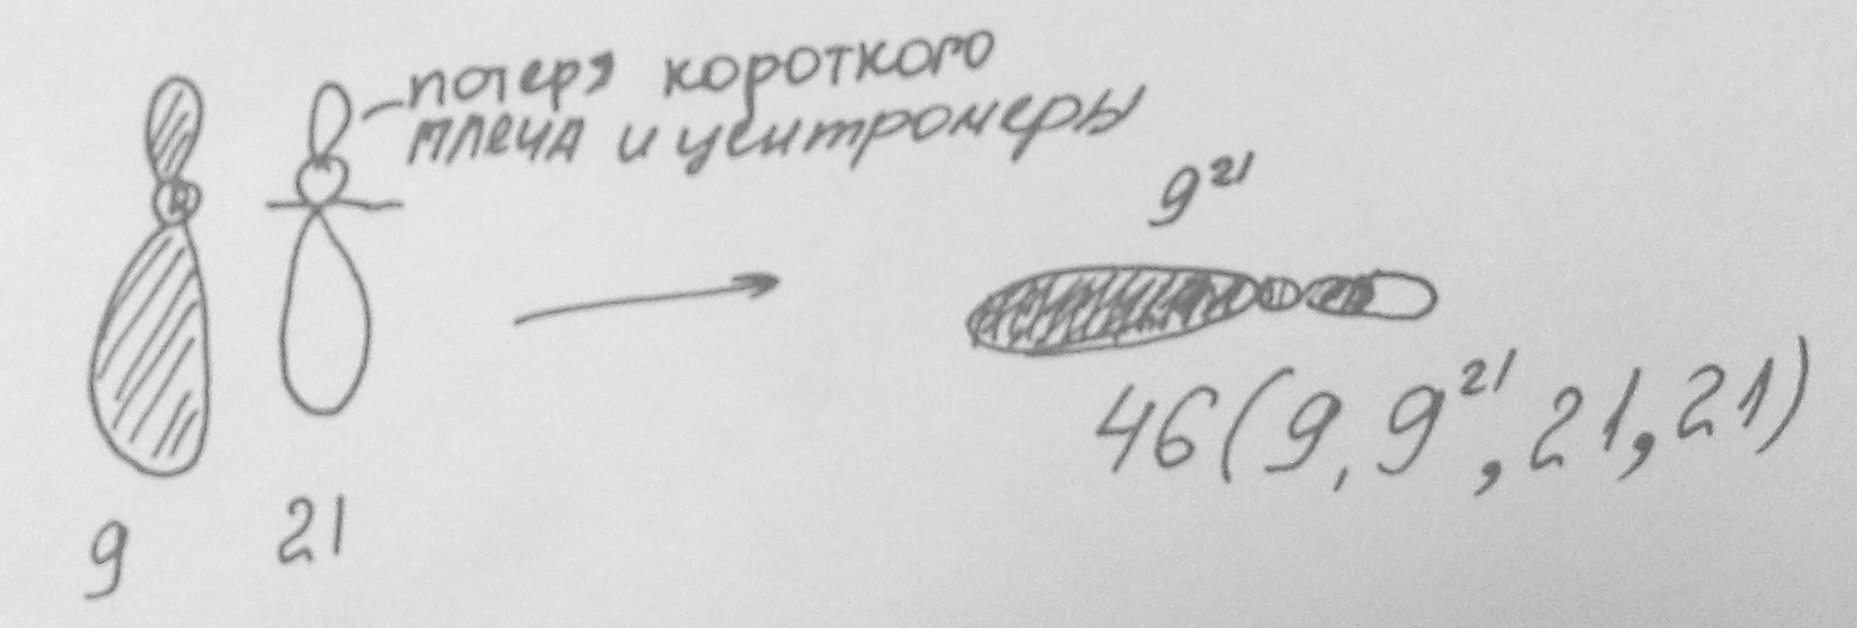 потеря короткого
плеча и центромеры
9²¹
46(9, 9²¹, 21, 21)
9
21